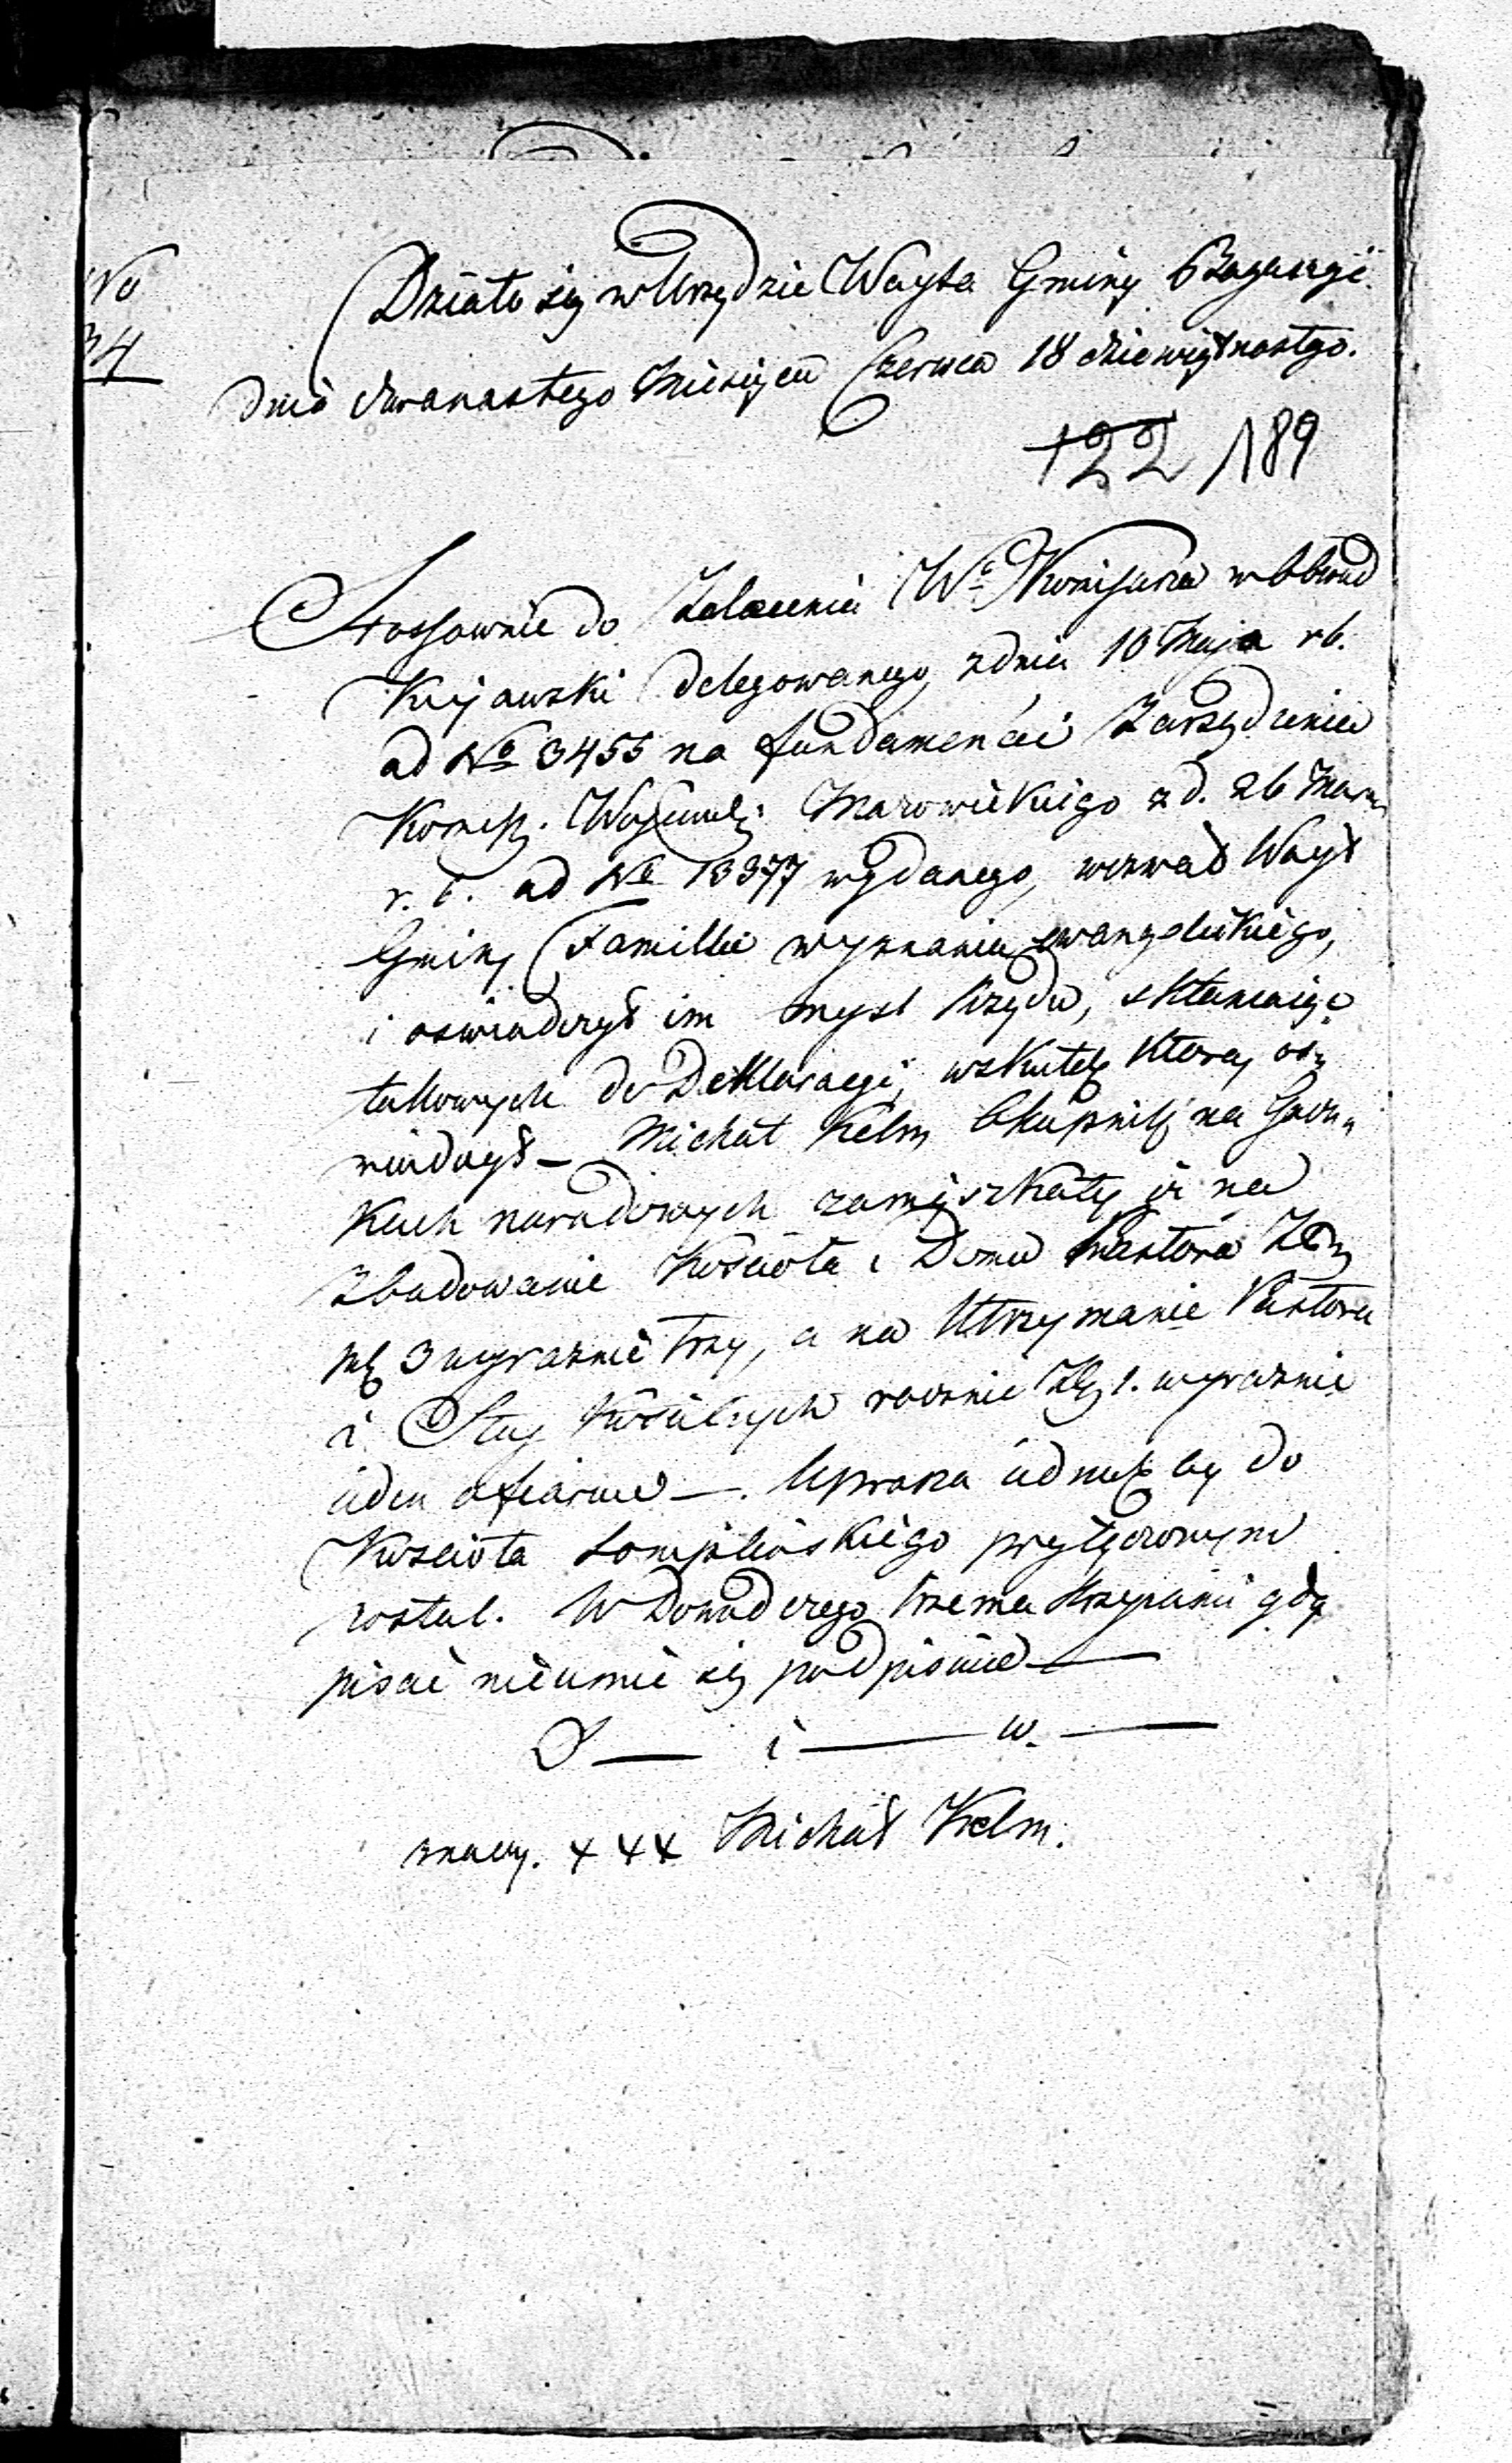 No
34
Działo się w Urzędzie Woyta Gminy
dnia dwanastego Miesiąca Czerwca 18 dziewiętnastgo.
122 189
Stossownie do Zalecenia Wo Kommissarza w Obwod
Kujawski delegowanego, z dnia 10 Maja rb.
ad No 3455 na fundamencie Zarządzenia
Mazowieckiego z d. 26 Marca
ad No 13377 wydanego, wezwał Woyt
Gminy Familie wyznania ewangelickiego,
i oswiadczył im mysl Rządu, skłaniając
takowych do Deklaracyi, wskutek ktorey os„
wiadczył — Michał Kelm Okupnik na
kach zamiszkały iż na
Zbudowanie Kościoła i Domu Pastora
3 wyraznie trzy, a na Utrzymanie Pastora
i Sług Kościelnych rocznie Zł 1. wyraznie
ieden ofiarue —. Uprasza iednak by do
Kościoła Sompolińskiego przyłączonym
został. W Dowod czego trzema Krzyzami gdy
pisać nieumie się podpisuie —
D — i — w. —
znaczy. +++ Michał Kelm.